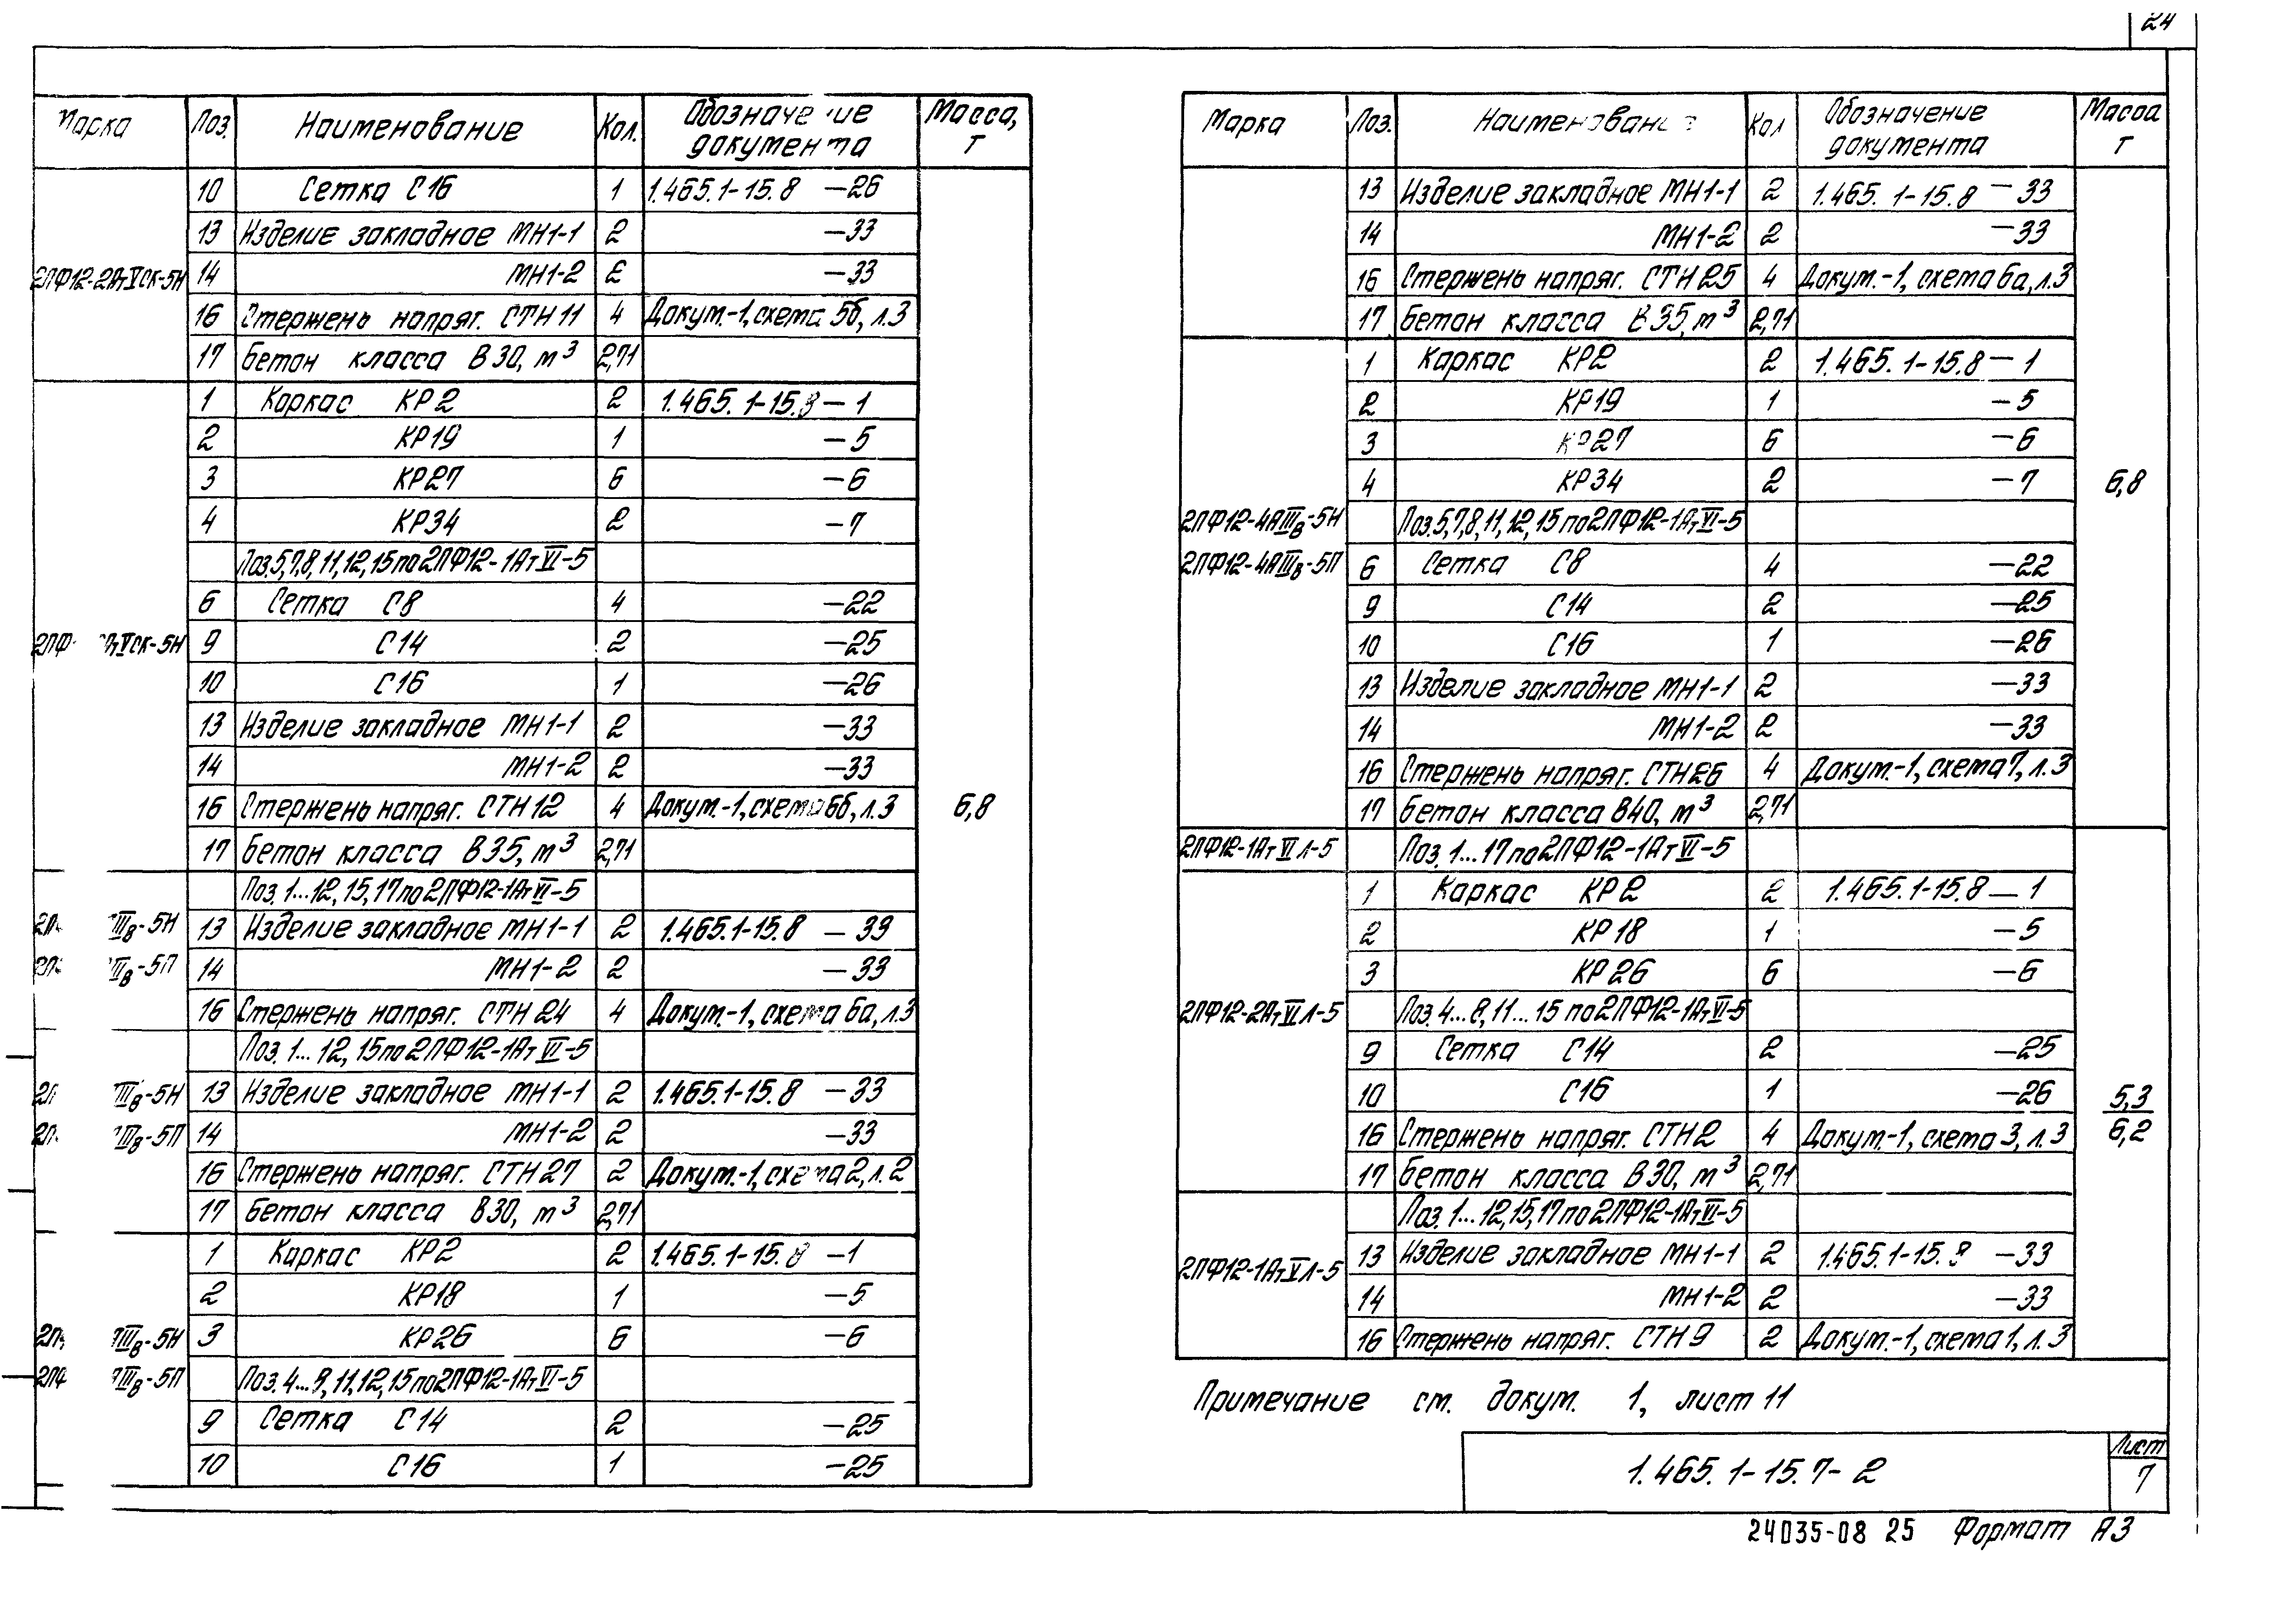 24
Марка Поз. Наименование Кол. Обозначение документа Масса, т
10 Сетка С16 1 1.465.1-15.8 -26
13 Изделие закладное МН1-1 2 -33
2ПФ12-2АтVСК-5Н 14 МН1-2 2 -33
16 Стержень напряг. СТН11 4 Докум.-1, схема 5б, л.3
17 Бетон класса В30, м³ 2,71
1 Каркас КР2 2 1.465.1-15.8 -1
2 КР19 1 -5
3 КР27 6 -6
4 КР34 2 -7
Поз.5,7,8,11,12,15 по 2ПФ12-1АтVI-5
6 Сетка С8 4 -22
9 С14 2 -25
10 С16 1 -26
13 Изделие закладное МН1-1 2 -33
14 МН1-2 2 -33
16 Стержень напряг. СТН12 4 Докум.-1, схема 6б, л.3 6,8
17 Бетон класса В35, м³ 2,71
Поз. 1...12, 15, 17 по 2ПФ12-1АтVI-5
13 Изделие закладное МН1-1 2 1.465.1-15.8 -33
14 МН1-2 2 -33
16 Стержень напряг. СТН24 4 Докум.-1, схема 6а, л.3
Поз. 1...12, 15 по 2ПФ12-1АтVI-5
13 Изделие закладное МН1-1 2 1.465.1-15.8 -33
14 МН1-2 2 -33
16 Стержень напряг. СТН27 2 Докум.-1, схема 2, л.2
17 Бетон класса В30, м³ 2,71
1 Каркас КР2 2 1.465.1-15.8 -1
2 КР18 1 -5
3 КР26 6 -6
Поз.4...8,11,12,15 по 2ПФ12-1АтVI-5
9 Сетка С14 2 -25
10 С16 1 -25
Марка Поз. Наименование Кол Обозначение документа Масса т
13 Изделие закладное МН1-1 2 1.465.1-15.8 -33
14 МН1-2 2 -33
16 Стержень напряг. СТН25 4 Докум.-1, схема 6а, л.3
17 Бетон класса В35, м³ 2,71
1 Каркас КР2 2 1.465.1-15.8 -1
2 КР19 1 -5
3 КР27 6 -6
4 КР34 2 -7 6,8
2ПФ12-4АIIIв-5Н Поз.5,7,8,11,12,15 по 2ПФ12-1АтVI-5
2ПФ12-4АIIIв-5П 6 Сетка С8 4 -22
9 С14 2 -25
10 С16 1 -26
13 Изделие закладное МН1-1 2 -33
14 МН1-2 2 -33
16 Стержень напряг. СТН26 4 Докум.-1, схема 7, л.3
17 Бетон класса В40, м³ 2,71
2ПФ12-1АтVIЛ-5 Поз. 1...17 по 2ПФ12-1АтVI-5
1 Каркас КР2 2 1.465.1-15.8 -1
2 КР18 1 -5
3 КР26 6 -6
2ПФ12-2АтVIЛ-5 Поз. 4...8, 11...15 по 2ПФ12-1АтVI-5
9 Сетка С14 2 -25
10 С16 1 -26 5,3
16 Стержень напряг. СТН2 4 Докум.-1, схема 3, л.3 6,2
17 Бетон класса В30, м³ 2,71
Поз. 1...12,15,17 по 2ПФ12-1АтVI-5
2ПФ12-1АтVЛ-5 13 Изделие закладное МН1-1 2 1.465.1-15.8 -33
14 МН1-2 2 -33
16 Стержень напряг. СТН9 2 Докум.-1, схема 1, л.3
Примечание см. докум. 1, лист 11
1.465.1-15.7-2
Лист
7
24035-08 25 Формат А3